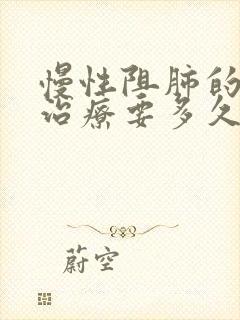 慢性阻肺的
治疗要多久
蔚空